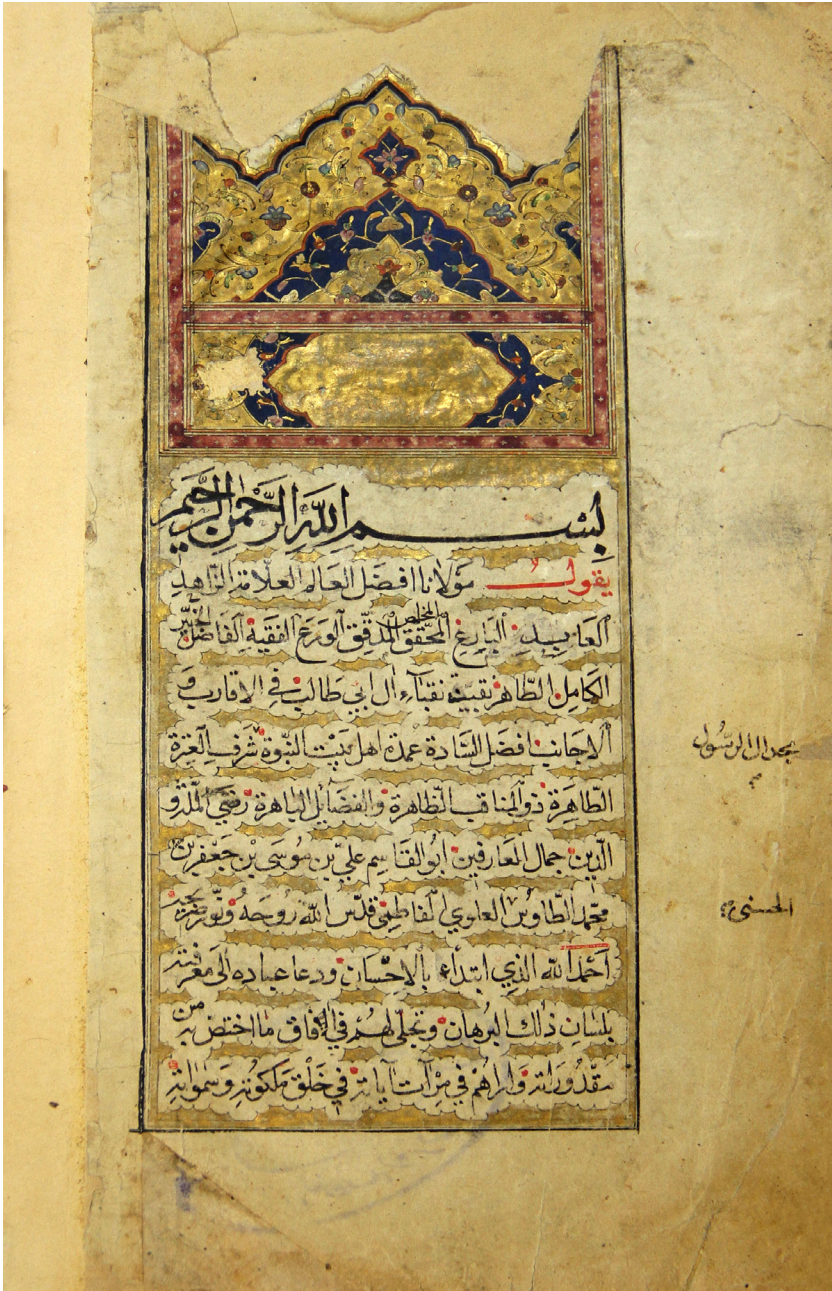 بِسْمِ اللّٰهِ الرَّحْمٰنِ الرَّحِيْمِ
يقول مَوْلانا افضَل العَالم العلّامة الزّاهد
العَابِد البَارِع المحقّق المخلص المدقّق الورَع الفقيه الفَاضل
الكامِل الطّاهر نقيب نقبآء ال ابي طالب في الاقارب و
الاجانب افضل السَّادة عمدة اهل بَيت النّبوة شَرف العِترة
الطّاهِرة ذو المناقب الظّاهرة والفضَايل الباهرة رضي الملّة و
الدّين جمال العَارفين ابو القَاسِم عليّ بن مُوسَى بن جَعْفر بن
محمّد الطّاوس العلوي الفاطمِيّ قدّس اللّه رُوحَهُ ونوّر ضريحه
اَحْمد اللّه الذي ابتداء بالاحْسَان ودعا عباده الى معرفته
بلسَانِ ذلك البُرهان وتجلّى لهُم في الافاق مَا اختصّ به من
مقدُورَاته وَاراهُم في مِرآت آياته في خَلْق مَلكوته وسَموَاته
مجد ال الرسُول
الحسني